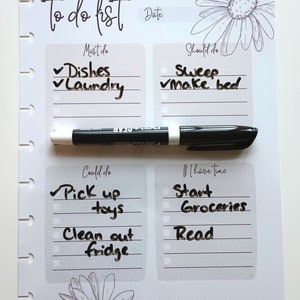 To do list
Date:
Must do
✓Dishes
✓Laundry
Should do
Sweep
✓Make bed
Could do
✓Pick up
toys
Clean out
fridge
If I have time
Start
Groceries
Read